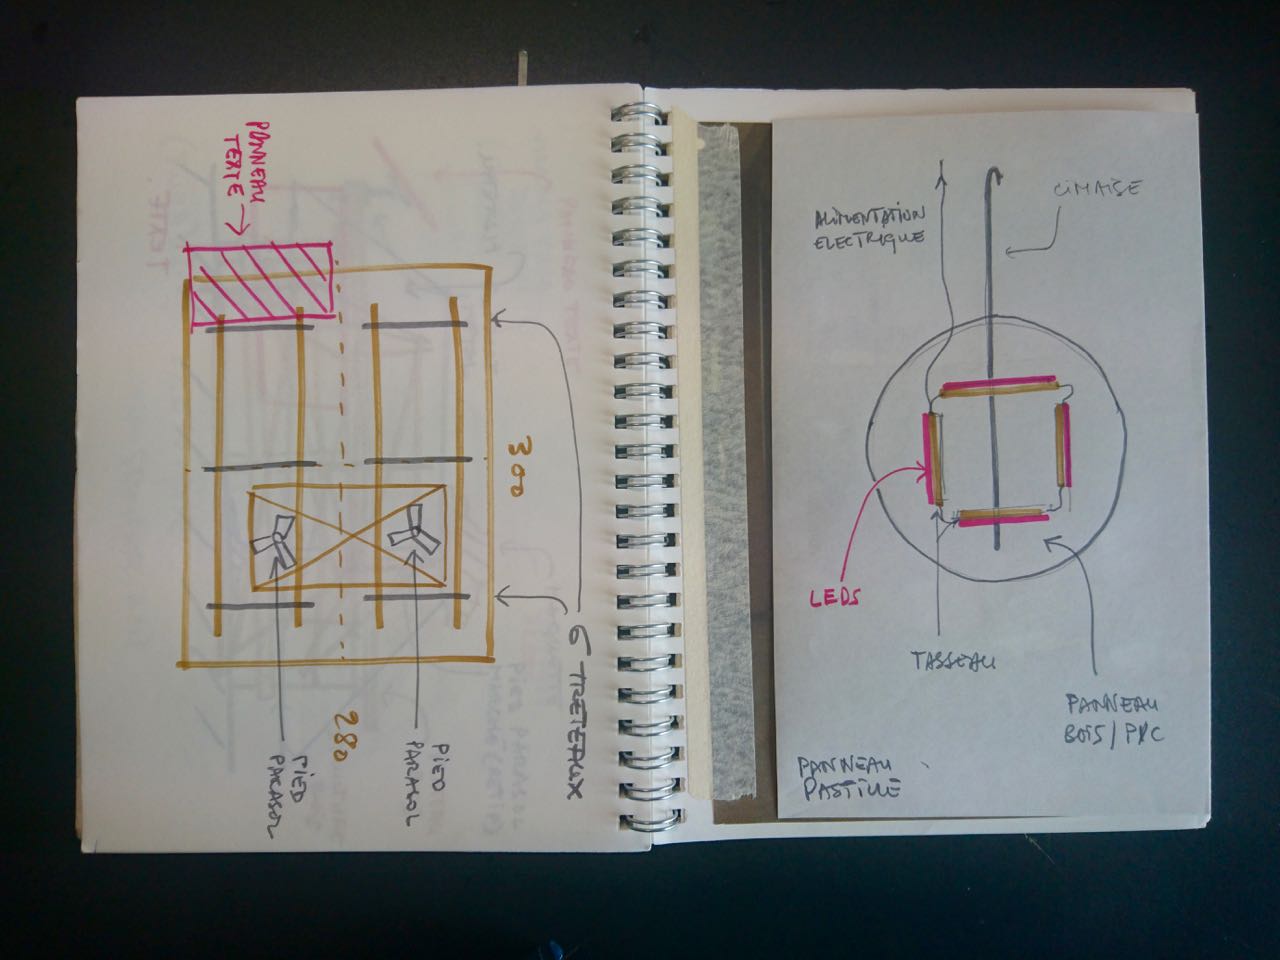 PANNEAU
TEXTE
300
280
6 TRETEAUX
PIED
PARASOL
PIED
PARASOL
CIMAISE
ALIMENTATION
ELECTRIQUE
LEDS
TASSEAU
PANNEAU
BOIS/PVC
PANNEAU
PASTILLE